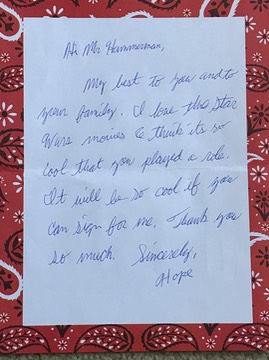 Hi Mr Hammerman,
My best to you and to
your family. I love the Star
Wars movies & think its so
cool that you played a role.
It will be so cool if you
can sign for me. Thank you
so much. Sincerely,
Hope